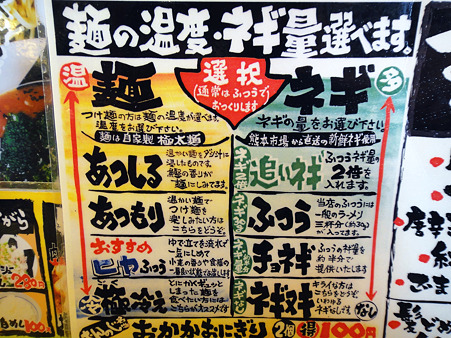 麺の温度・ネギ量選べます。
温
麺
選択
(通常はふつうで)
おつくりします
ネギ
多
つけ麺の方は麺の温度が選べます。
温度をお選び下さい。
麺は自家製 極太麺
ネギの量をお選び下さい
熊本市場から直送の新鮮ネギ使用
あつしる
温かい麺をダシ汁に
浸したものです。
麺にしみてます。
追いネギ
ふつうネギ量の
2倍を
入れます。
あつもり
温かい麺で
つけ麺を
楽しみたい方は
こちらをどうぞ。
ふつう
当店のふつうには
一般のラーメン
三杯分(約30g)
が入ってます。
おすすめの
ヒヤ ふつう
ゆで立てを流水で
一気にしめて
小麦の香りや食感の
チョネギ
ふつうのネギ量を
約半分で
提供いたします
冷
極冷え
とにかくギュッと
しまった麺を
食べたい方には
こちらがオススメです
ネギヌキ
キライな方は
こちらをどうぞ
いわゆる
ネギなしです。
なし
おかかおにぎり 2個 得 100円
230円
100円